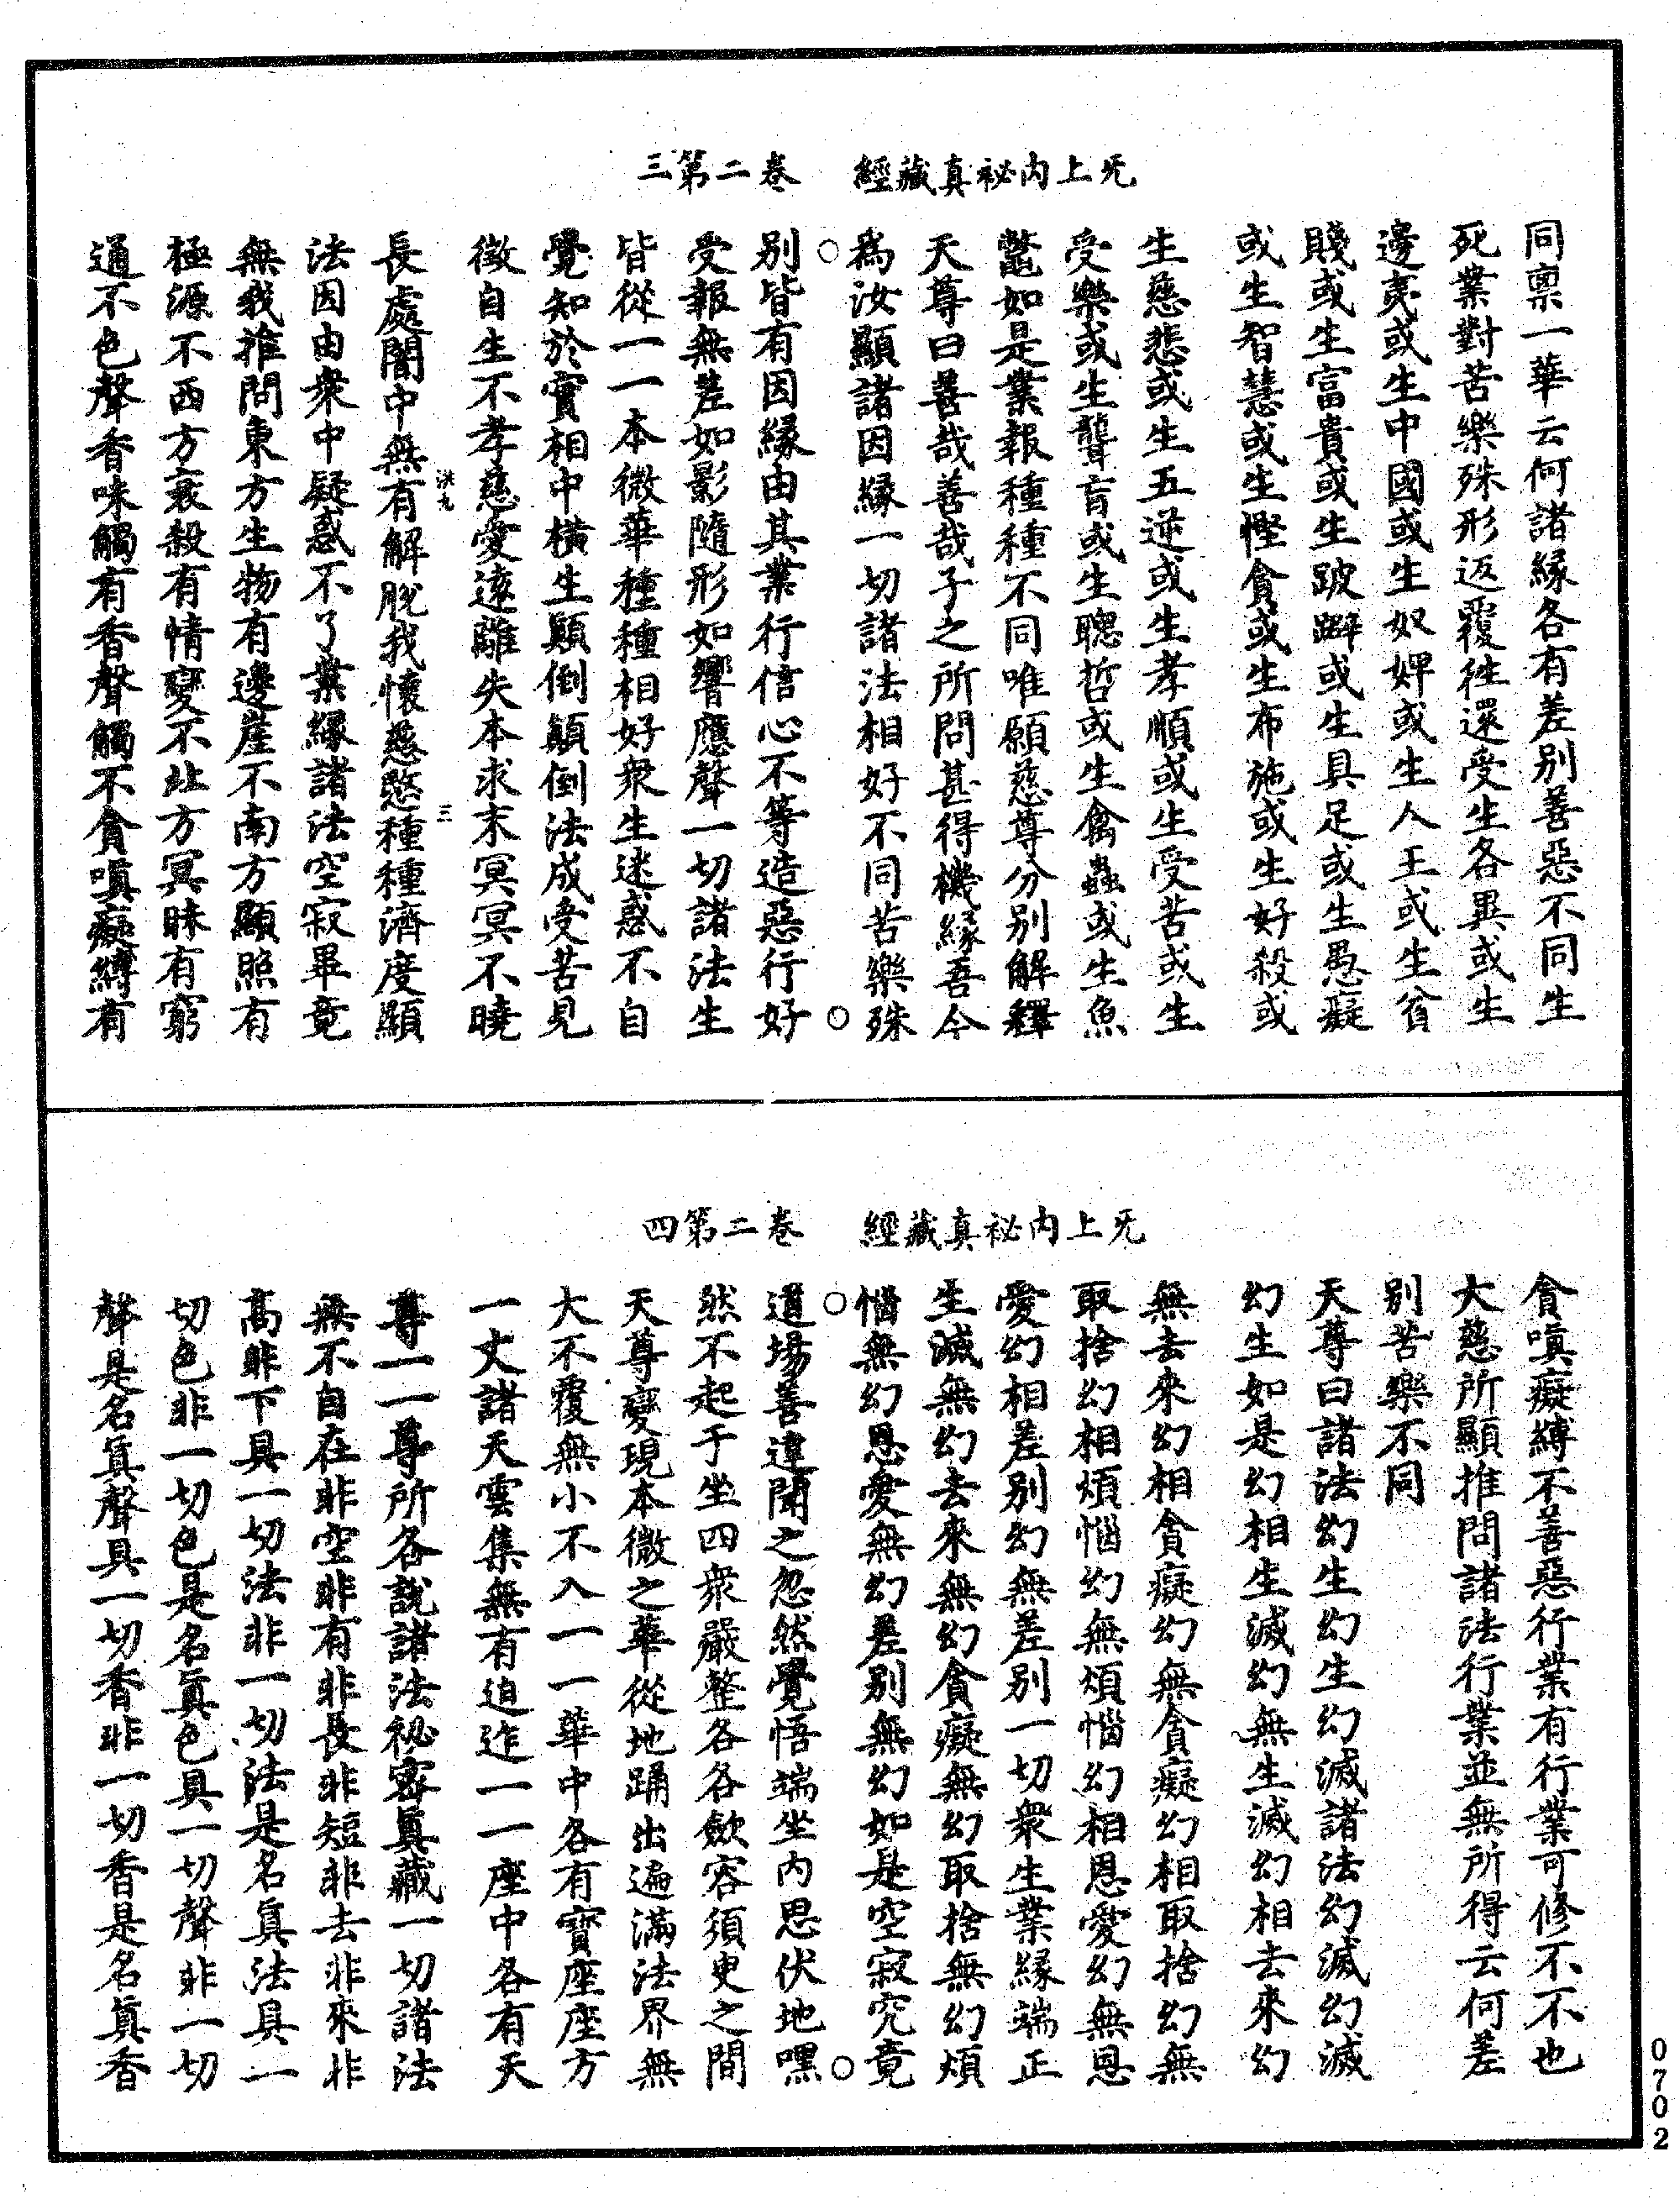 无上內祕真藏經　卷二第三
同禀一華云何諸緣各有差别善惡不同生
死業對苦樂殊形返覆徃還受生各異或生
邊夷或生中國或生奴婢或生人王或生貧
賤或生富貴或生跛躃或生具足或生愚癡
或生智慧或生慳貪或生布施或生好殺或
生慈悲或生五逆或生孝順或生受苦或生
受樂或生聾盲或生聰哲或生禽蟲或生魚
鼈如是業報種種不同唯願慈尊分别解釋
天尊曰善哉善哉子之所問甚得機緣吾今
爲汝顯諸因緣一切諸法相好不同苦樂殊
别皆有因緣由其業行信心不等造惡行好
受報無差如影隨形如響應聲一切諸法生
皆從一一本微華種種相好衆生迷惑不自
覺知於實相中橫生顚倒顛倒法成受苦見
徵自生不孝慈愛遠離失本求末冥冥不曉
長處闇中無有解脫我懷慈愍種種濟度顯
洪九　三
法因由衆中疑惑不了業緣諸法空寂畢竟
無我推問東方生物有邊崖不南方顯照有
極源不西方衰殺有情變不北方冥昧有窮
通不色聲香味觸有香聲觸不貪嗔癡縛有
无上內祕真藏經　卷二第四
貪嗔癡縛不善惡行業有行業可修不不也
大慈所顯推問諸法行業並無所得云何差
别苦樂不同
天尊曰諸法幻生幻生幻滅諸法幻滅幻滅
幻生如是幻相生滅幻無生滅幻相去來幻
無去來幻相貪癡幻無貪癡幻相取捨幻無
取捨幻相煩惱幻無煩惱幻相恩愛幻無恩
愛幻相差别幻無差别一切衆生業緣端正
生滅無幻去來無幻貪癡無幻取捨無幻煩
惱無幻恩愛無幻差别無幻如是空寂究竟
道場善達聞之忽然覺悟端坐內思伏地嘿
然不起于坐四衆嚴整各各歛容須臾之間
天尊變現本微之華從地踊出遍滿法界無
大不覆無小不入一一華中各有寶座座方
一丈諸天雲集無有迫迮一一座中各有天
尊一一尊所各說諸法祕密眞藏一切諸法
無不自在非空非有非長非短非去非來非
高非下具一切法非一切法是名眞法具一
切色非一切色是名眞色具一切聲非一切
聲是名眞聲具一切香非一切香是名眞香
0702